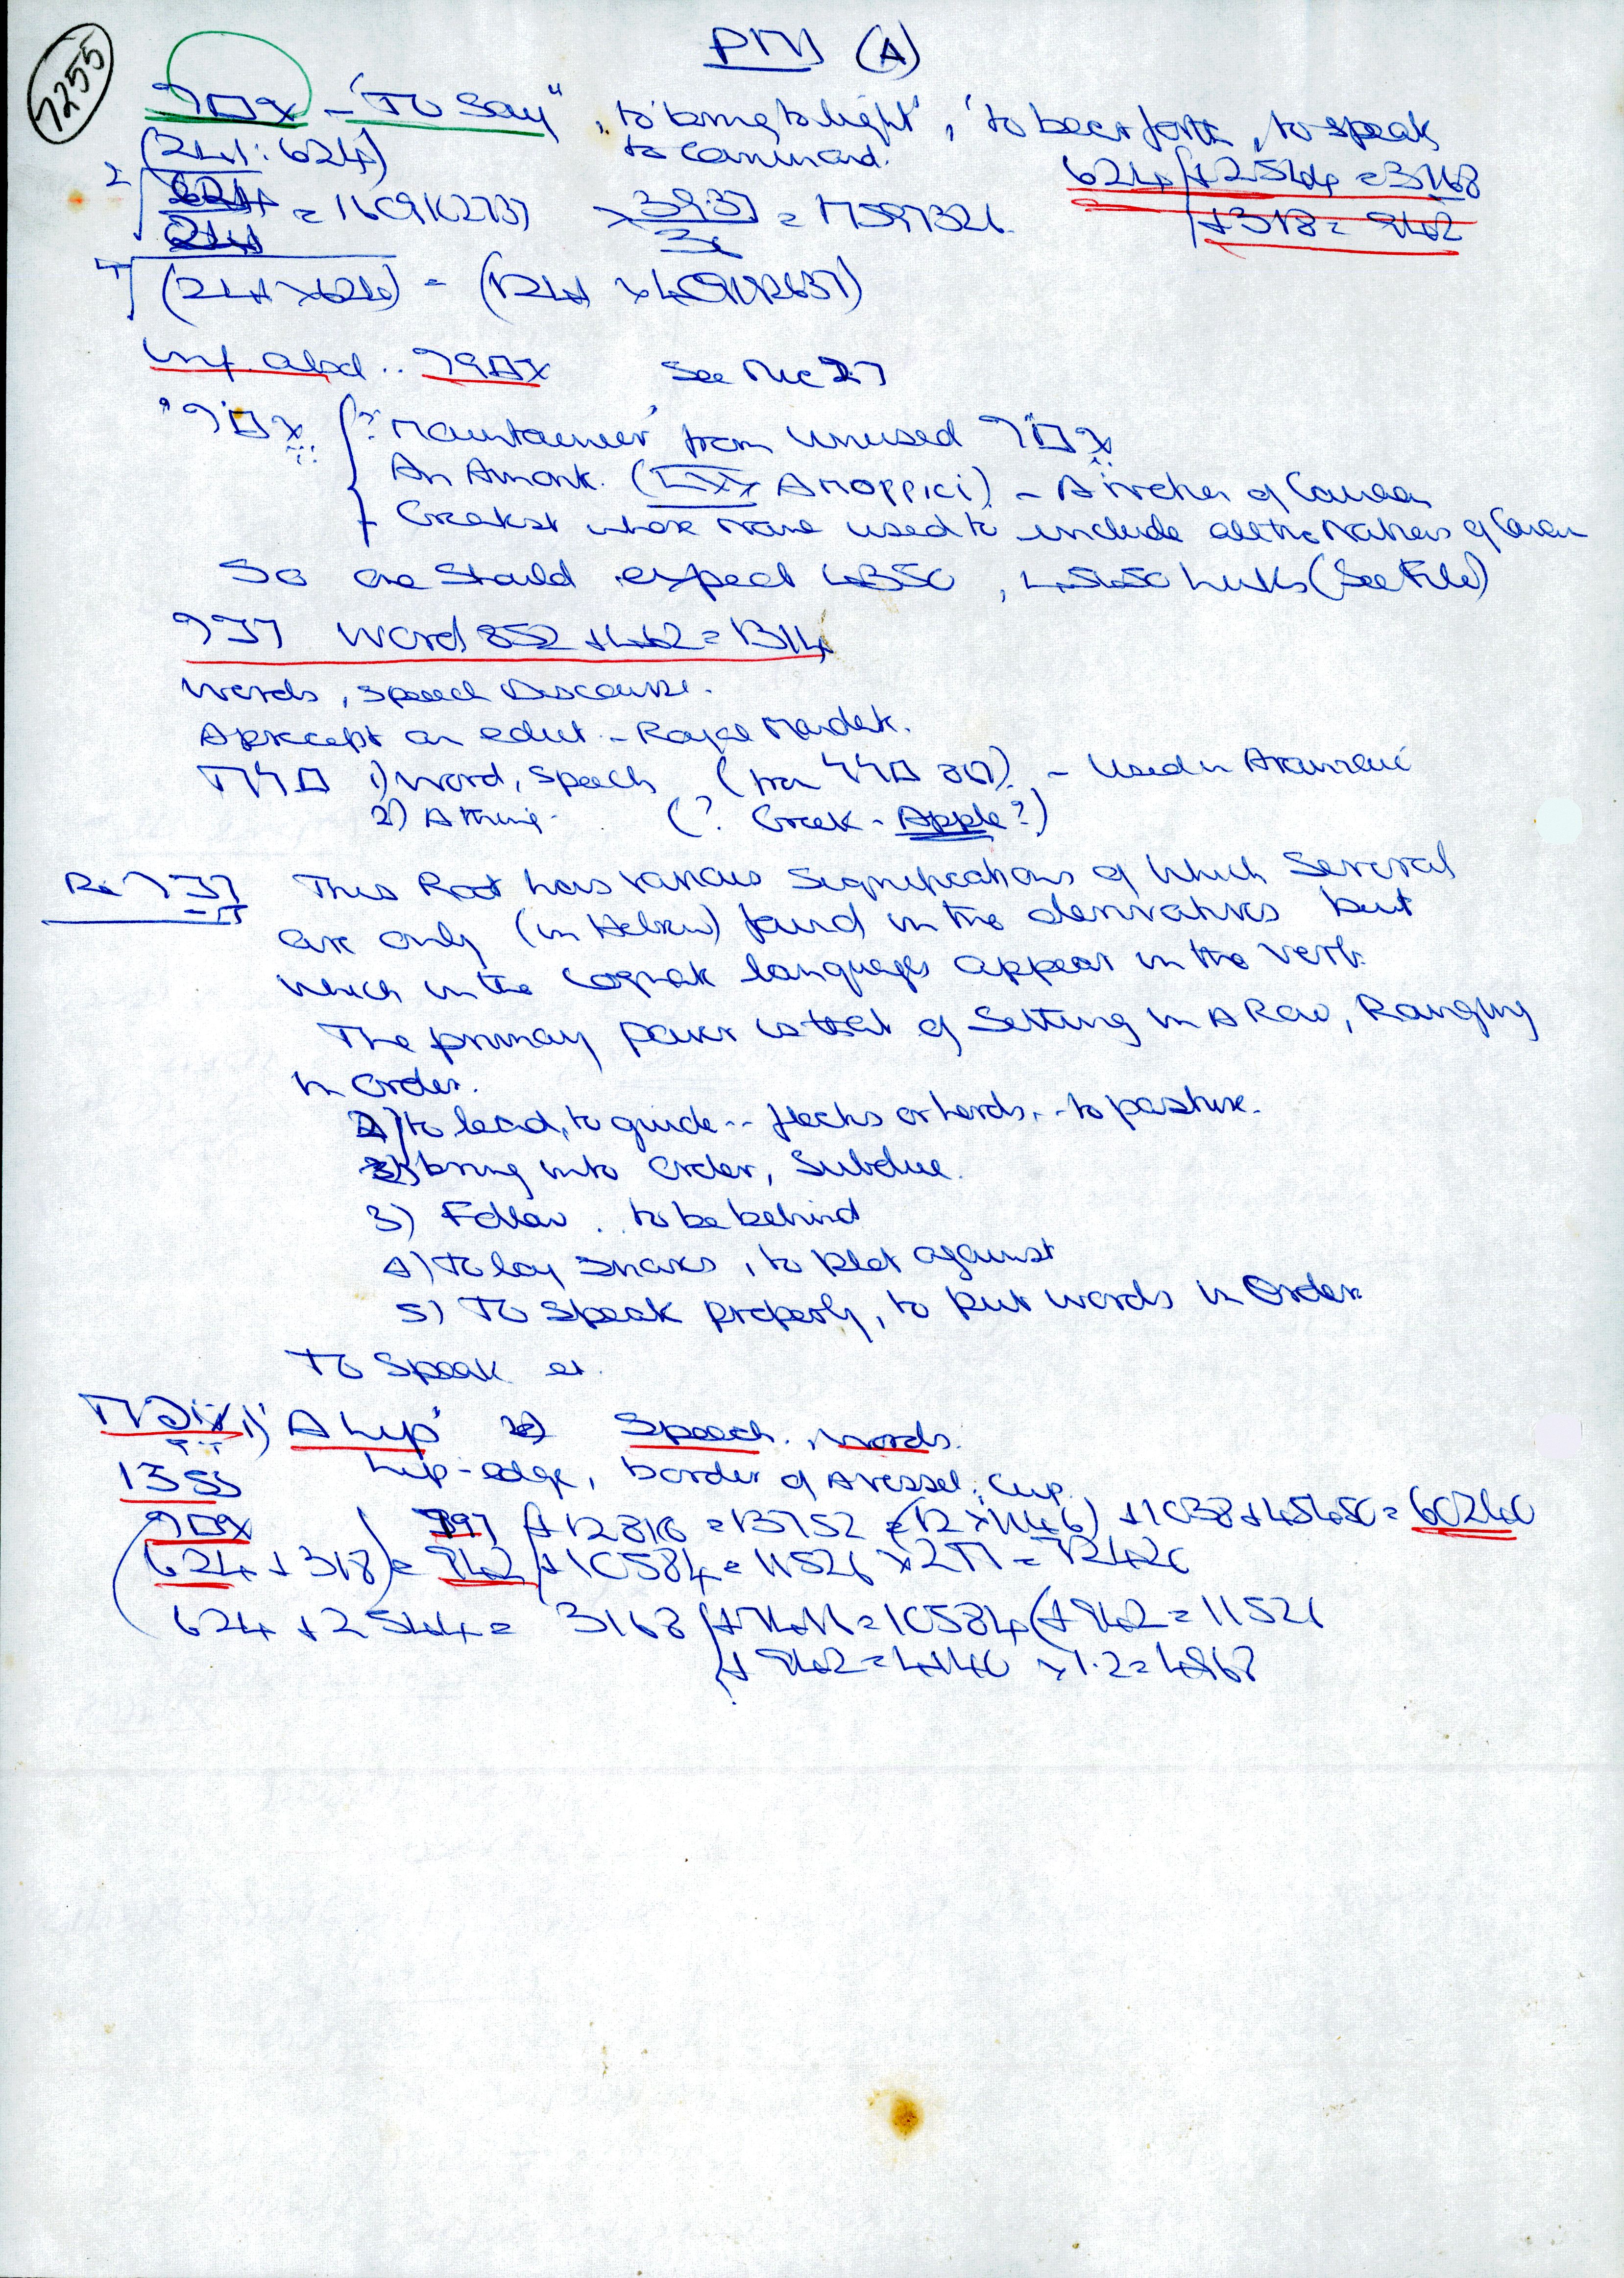 7255
(A)
אמר - "To Say", 'to bring to light', 'to bear forth, to speak
(241:624) to command.
624 + 2544 = 3168
+ 318 = 942
624
241
= 1609102737 × 39.37 = 17597326
36
(241 × 624) = (1241 ×
Inf. absol .. See Mic 2.7
אמר ? 'Mountaineer' from unused אמר
An Amorite. (LXX Αμορραιοι) - A
Greatest whose name used to include all the Nations of
So one should expect , links (See File)
דבר Word 852 + 462 = 1314
Words, speech Discourse.
A precept an edict - Royal Mandate.
מלה 1) Word, Speech (from מלל) - Used in Aramaic
2) A thing. (? Greek - Apple?)
Re דבר This Root has various Significations of Which Several
are only (in Hebrew) found in the derivatives but
which in the cognate languages appear in the verb.
The primary power is that of Setting in A Row, Ranging
in Order.
2) to lead, to guide .. flocks or herds .. to pasture.
bring into Order, Subdue.
3) Follow . to be behind
4) To lay snares, to plot against
5) To Speak properly, to put words in Order
To Speak
שפה 1) 'A Lip' 2) Speech. Words.
1355 Lip-edge, border of A vessel; Cup.
אמר 997 + 12816 = 13752 = (12 × 1146) + 1038 + 45450 = 60240
(624 + 318) = 942 + 10584 = 11526 × 2π = 72420
624 + 2544 = 3168 + 7416 = 10584 (+ 942 = 11526
+ 942 = 4140 × 1.2 = 4968